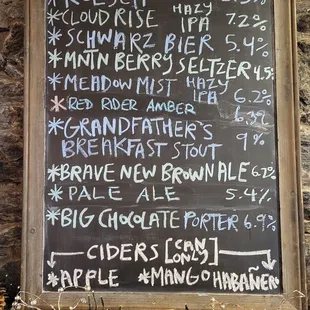 *CLOUD RISE HAZY IPA 7.2%
*SCHWARZ BIER 5.4%
*MNTN BERRY SELTZER 4.5%
*MEADOW MIST HAZY IPA 6.2%
*RED RIDER AMBER
*GRANDFATHER'S
BREAKFAST STOUT 9%
*BRAVE NEW BROWN ALE
*PALE ALE 5.4%
*BIG CHOCOLATE PORTER 6.9%
CIDERS [CAN ONLY]
*APPLE *MANGO HABAÑERO